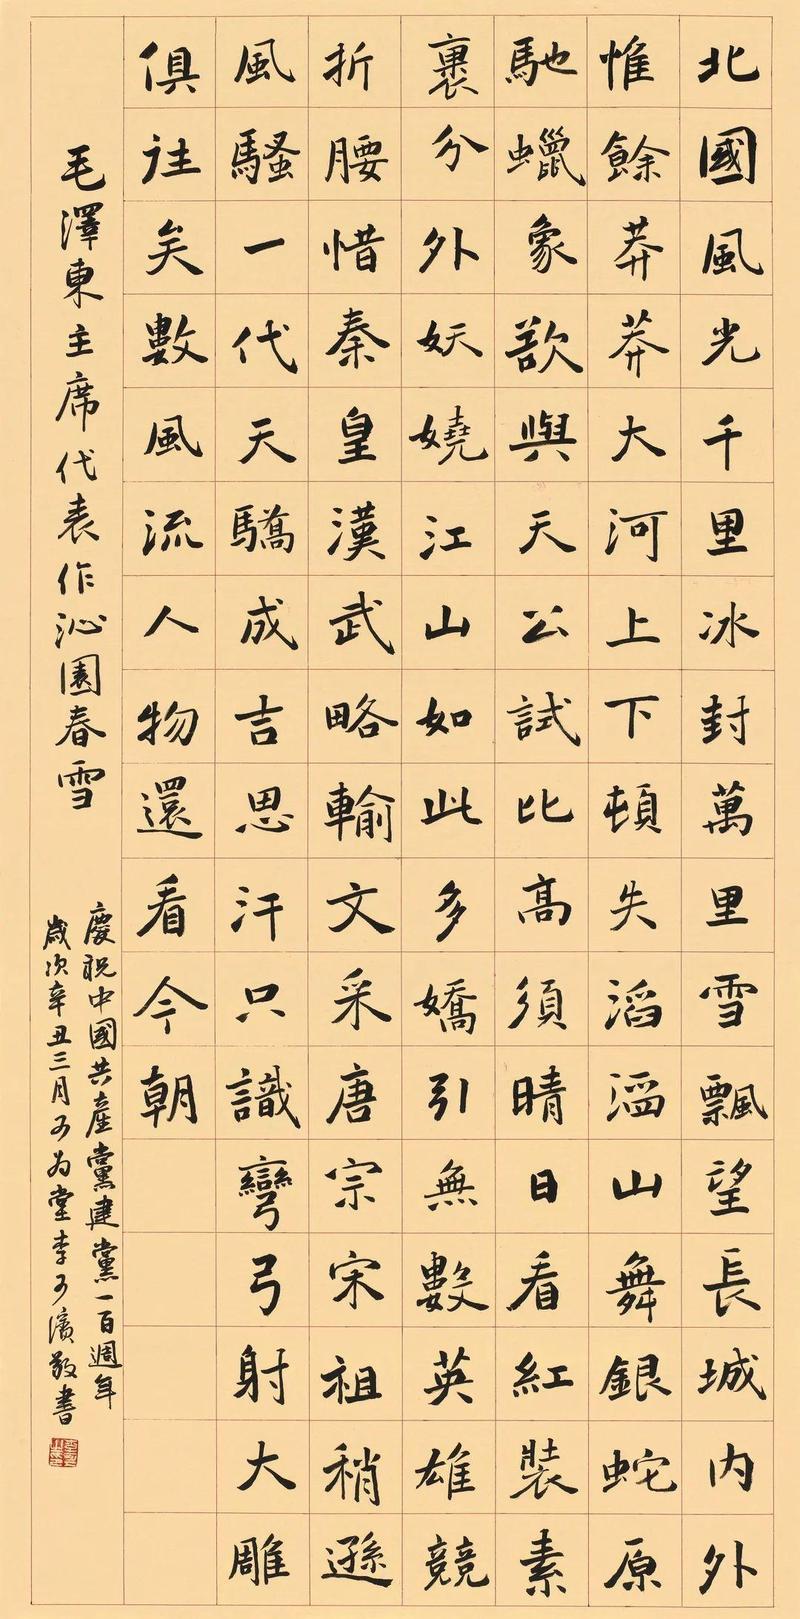 北國風光千里冰封萬里雪飄望長城内外
惟餘莽莽大河上下頓失滔滔山舞銀蛇原
馳蠟象欲與天公試比高須晴日看紅裝素
裹分外妖嬈江山如此多嬌引無數英雄競
折腰惜秦皇漢武略輸文采唐宗宋祖稍遜
風騷一代天驕成吉思汗只識彎弓射大雕
俱往矣數風流人物還看今朝
毛澤東主席代表作沁園春雪
慶祝中國共產黨建黨一百週年
歲次辛丑三月為堂李濱敬書